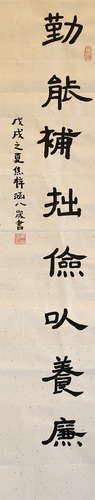 勤能補拙儉以養廉
戊戌之夏焦梓涵八歲書